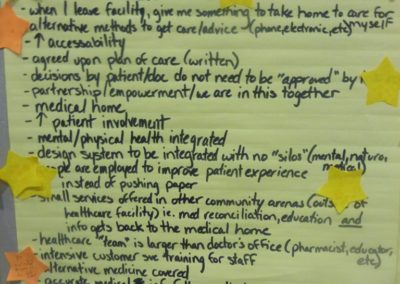 - when I leave facility, give me something to take home to care for myself
- alternative methods to get care/advice - (phone, electronic, etc)
- ↑ accessability
- agreed upon plan of care (written)
- decisions by patient/doc do not need to be "approved" by
- partnership/empowerment/we are in this together
- medical home
- ↑ patient involvement
- mental/physical health integrated
- design system to be integrated with no "silos" (mental, natural, medical)
are employed to improve patient experience
instead of pushing paper
- small services offered in other community arenas (outside of
healthcare facility) ie. med reconciliation, education and
info gets back to the medical home
- healthcare "team" is larger than doctor's office (pharmacist, educator, etc)
- intensive customer svc training for staff
- alternative medicine covered
- accurate medical info